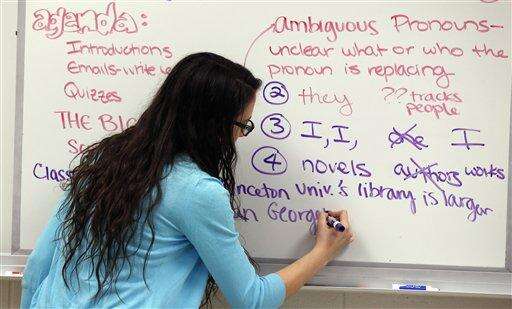 agenda:
Introductions
Emails-write
Quizzes
THE
Class
ambiguous Pronouns-
unclear what or who the
pronoun is replacing
② they ?? tracks
people
③ I, I, one I
④ novels authors works
nceton Univ.'s library is larger
an Georg